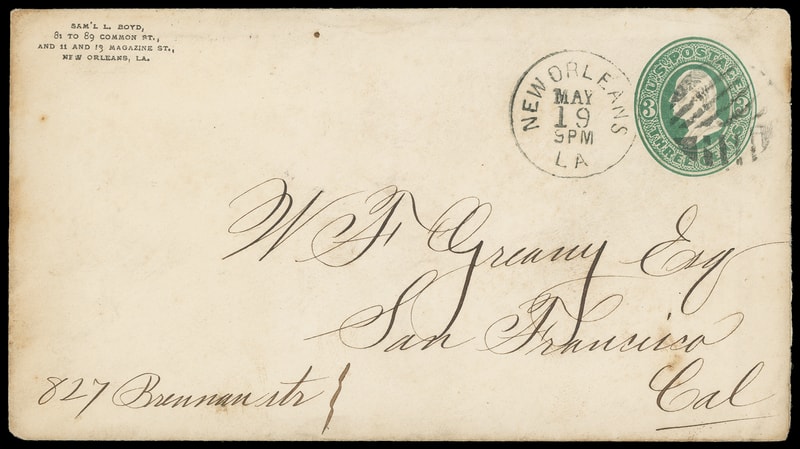 SAM'L L. BOYD,
81 TO 89 COMMON ST.,
AND 11 AND 13 MAGAZINE ST.,
NEW ORLEANS, LA.
NEW ORLEANS
MAY
19
9PM
LA
U.S. POSTAGE
3 3
THREE CENTS
W F Greany Esq
San Francisco
Cal
827 Brennan str